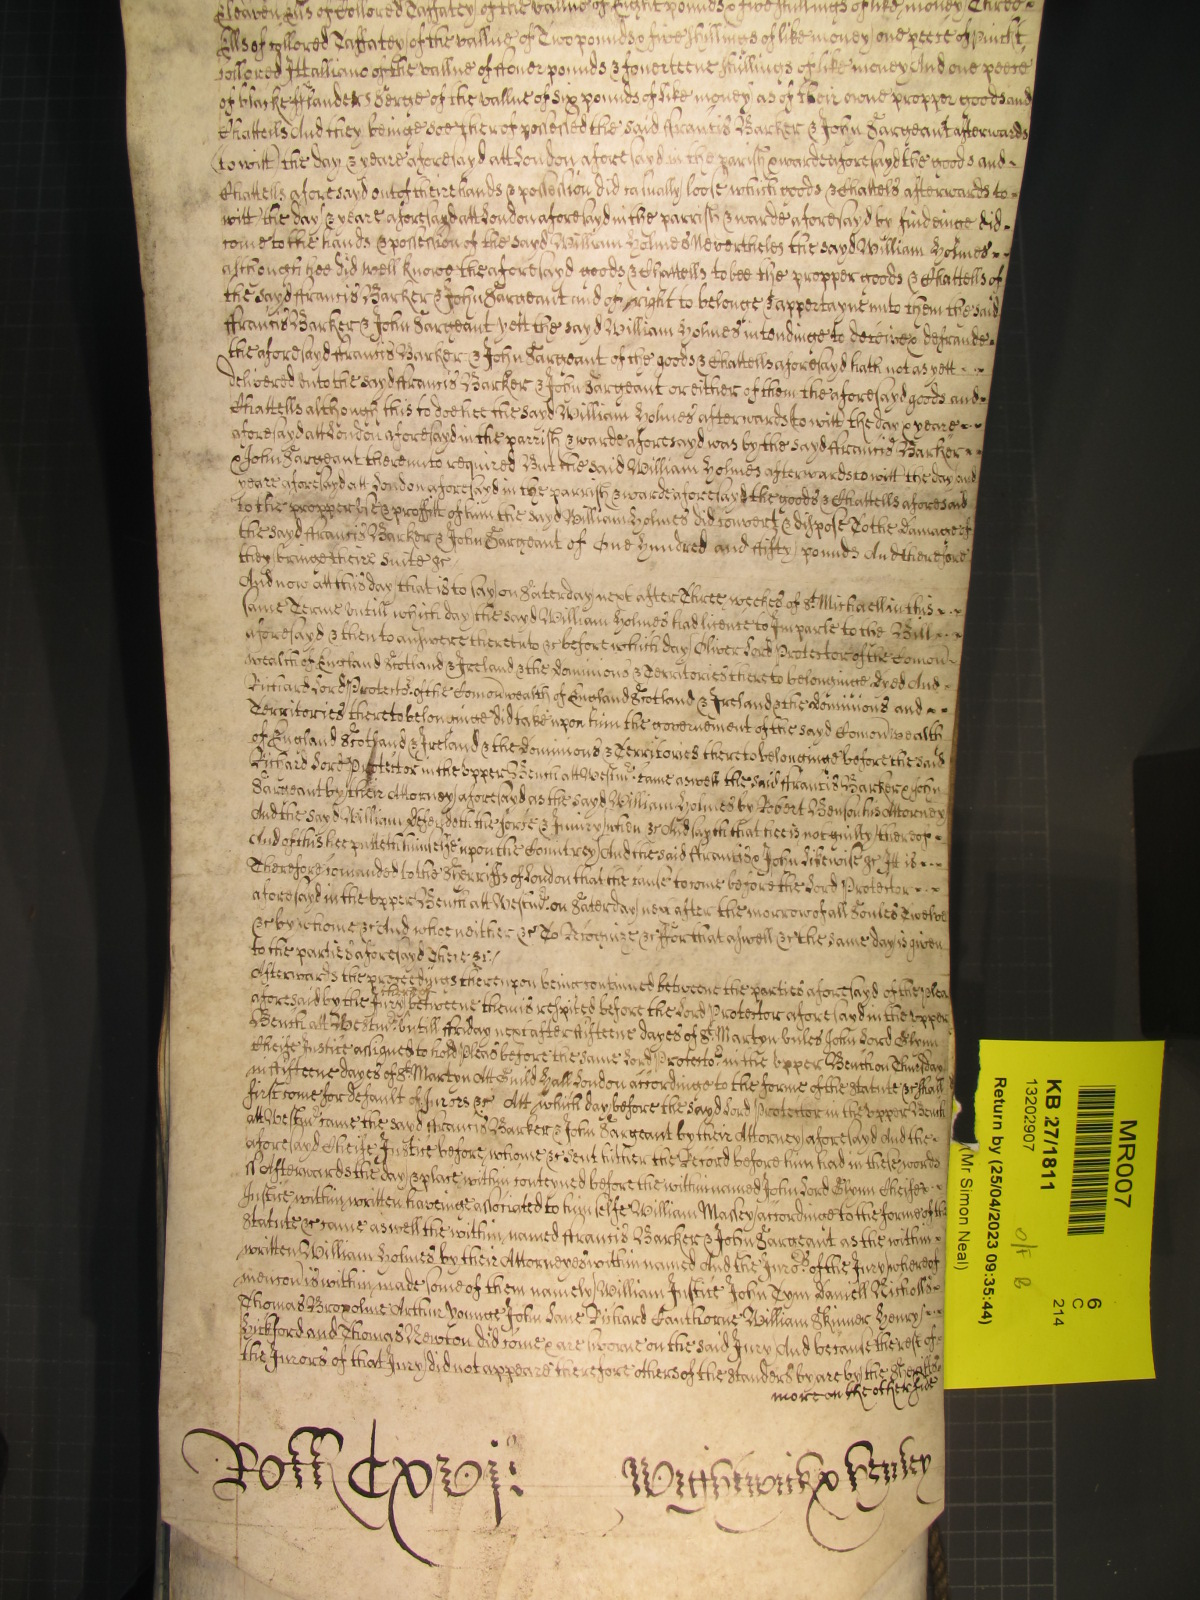 Eleaven Ells of Collored Taffatey of the vallue of Eight pounds & five shillings of like money Three
Ells of collored Taffatey of the vallue of Two pounds & five shillings of like money one peece of
Collored Ittalliano of the vallue of fower pounds & fowerteene shillings of like money And one peece
of blacke Fflanders Serge of the vallue of six pounds of like money as of their owne propper goods and
Chattells And they beinge soe thereof possessed the said Ffrancis Barker & John Sargeant afterwards
(to witt) the day & yeare aforesayd att London aforesayd in the parish & warde aforesayd the goods and
Chattells aforesayd out of theire hands & possession did casually loose which goods & Chattells afterwards to
witt the day & yeare aforesayd att London aforesayd in the parrish & warde aforesayd by findeinge did
come to the hands & possession of the sayd William Holmes Nevertheles the sayd William Holmes
although hee did well knowe the aforesayd goods & Chattells to bee the propper goods & Chattells of
the sayd Ffrancis Barker & John Sargeant and of right to belonge & appertayne unto them the said
Ffrancis Barker & John Sargeant yett the sayd William Holmes intendinge to deceive & defraude
the aforesayd Ffrancis Barker & John Sargeant of the goods & Chattells aforesayd hath not as yett
delivered unto the sayd Ffrancis Barker & John Sargeant or either of them the aforesayd goods and
Chattells although this to doe hee the sayd William Holmes afterwards to witt the day & yeare
aforesayd att London aforesayd in the parrish & warde aforesayd was by the sayd Ffrancis Barker
& John Sargeant thereunto required But the said William Holmes afterwards to witt the day and
yeare aforesayd att London aforesayd in the parrish & warde aforesayd the goods & Chattells aforesaid
to the propper use & proffitt of him the sayd William Holmes did convert & dispose To the damage of
the sayd Ffrancis Barker & John Sargeant of One hundred and fifty pounds And therefore
they bringe theire suite &c
And now att this day that is to say on Saterday next after Three weekes of St Michaell in this
same Terme untill which day the sayd William Holmes had licence to Imparle to the Bill
aforesayd & then to answere thereunto &c before which day Oliver Lord Protector of the Comon
wealth of England Scotland & Ireland & the dominions & Territories thereto belonginge dyed And
Richard Lord Protector of the Comonwealth of England Scotland & Ireland & the dominions and
Territories thereto belonginge did take upon him the governement of the sayd Comonwealth
of England Scotland & Ireland & the dominions & Territories thereto belonginge before the said
Richard Lord Protector in the upper Bench att Westmr came aswell the said Ffrancis Barker & John
Sargeant by their Attorney aforesayd as the sayd William Holmes by Robert Benson his Attorney
And the sayd William defendeth the force & Iniury when &c And sayth that hee is not guilty thereof
And of this hee putteth himselfe upon the Countrey And the said Ffrancis & John likewise &c It is
Therefore comanded to the Sherriffs of London that they cause to come before the Lord Protector
aforesayd in the upper Bench att Westmr on Saterday next after the morrow of all Soules Twelve
&c by whome &c And who neither &c To Recognize &c Ffor that aswell &c the same day is given
to the parties aforesayd there &c
Afterwards the proceedings thereupon being continued betweene the parties aforesayd of the plea
aforesaid by the Jury betweene them is respited before the Lord Protector aforesayd in the upper
Bench att Westmr untill Ffriday next after fifteene dayes of St Martyn unles John Lord Glynn
Cheife Justice assigned to hold pleas before the same Lord Protector in the upper Bench on Thursday
in fifteene dayes of St Martyn Att Guild Hall London accordinge to the forme of the statute &c shall
first come for default of Jurors &c Att which day before the sayd Lord Protector in the upper Bench
att Westmr came the sayd Ffrancis Barker & John Sargeant by their Attorney aforesayd And the
aforesayd Cheife Justice before whome &c sent hither the Record before him had in these words
ss Afterwards the day & place within conteyned before the withinnamed John Lord Glynn Cheife
Justice within written haveinge associated to himselfe William Massey accordinge to the forme of the
Statute &c came aswell the within named Ffrancis Barker & John Sargeant as the within
written William Holmes by their Attorneyes within named And the Jurors of the Jury whereof
mencon is within made some of them namely William Justice John Tym Daniell Nicholls
Thomas Bropolme Arthur Younge John Lane Richard Canthorne William Skinner Henry
Hickford and Thomas Newton did come & are sworne on the said Jury And because the rest of
the Jurors of that Jury did not appeare therefore others of the standers by are by the Sherriffs
more on the other side
Roll Cxvij
Wightwick & Henley
MR007
6
C
214
KB 27/1811
13202907
Return by (25/04/2023 09:35:44)
(Mr Simon Neal)